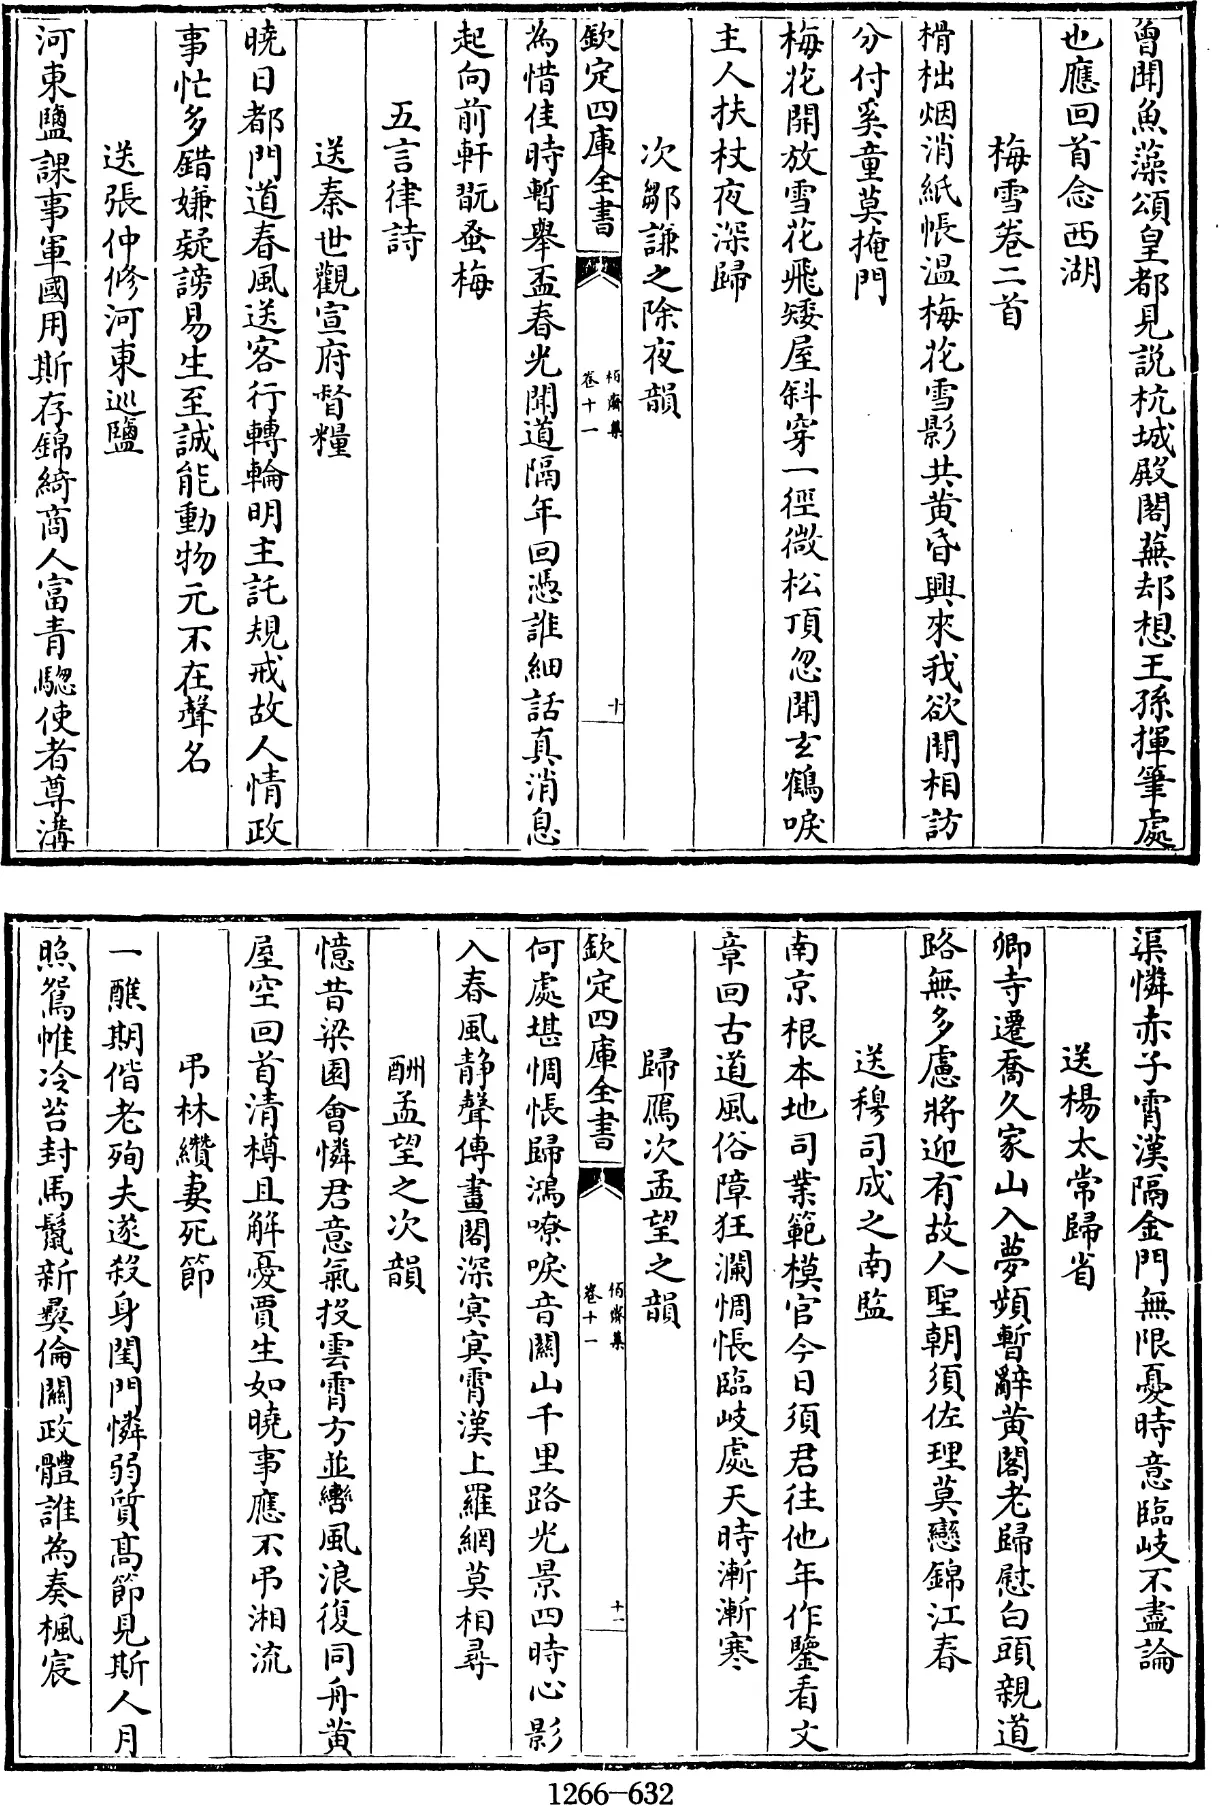 曾聞魚藻頌皇都見説杭城殿閣蕪却想王孫揮筆處
也應回首念西湖
梅雪卷二首
榾柮烟消紙帳温梅花雪影共黄昏興來我欲閒相訪
分付奚童莫掩門
梅花開放雪花飛矮屋斜穿一徑微松頂忽聞玄鶴唳
主人扶杖夜深歸
次鄒謙之除夜韻
欽定四庫全書
栢齋集
卷十一
十
為惜佳時暫舉盃春光聞道隔年回憑誰細話真消息
起向前軒翫蚤梅
五言律詩
送秦世觀宣府督糧
曉日都門道春風送客行轉輪明主託規戒故人情政
事忙多錯嫌疑謗易生至誠能動物元不在聲名
送張仲修河東巡鹽
河東鹽課事軍國用斯存錦綺商人富青驄使者尊溝
渠憐赤子霄漢隔金門無限憂時意臨岐不盡論
送楊太常歸省
卿寺遷喬久家山入夢頻暫辭黄閣老歸慰白頭親道
路無多慮將迎有故人聖朝須佐理莫戀錦江春
送穆司成之南監
南京根本地司業範模官今日須君往他年作鑒看文
章回古道風俗障狂瀾惆悵臨岐處天時漸漸寒
歸鴈次孟望之韻
欽定四庫全書
栢齋集
卷十一
十一
何處堪惆悵歸鴻嘹唳音關山千里路光景四時心影
入春風静聲傳畫閣深冥冥霄漢上羅網莫相尋
酬孟望之次韻
憶昔梁園會憐君意氣投雲霄方並轡風浪復同舟黄
屋空回首清樽且解憂賈生如曉事應不弔湘流
弔林纘妻死節
一醮期偕老殉夫遂殺身閨門憐弱質髙節見斯人月
照鴛帷冷苔封馬鬛新彛倫關政體誰為奏楓宸
1266-632